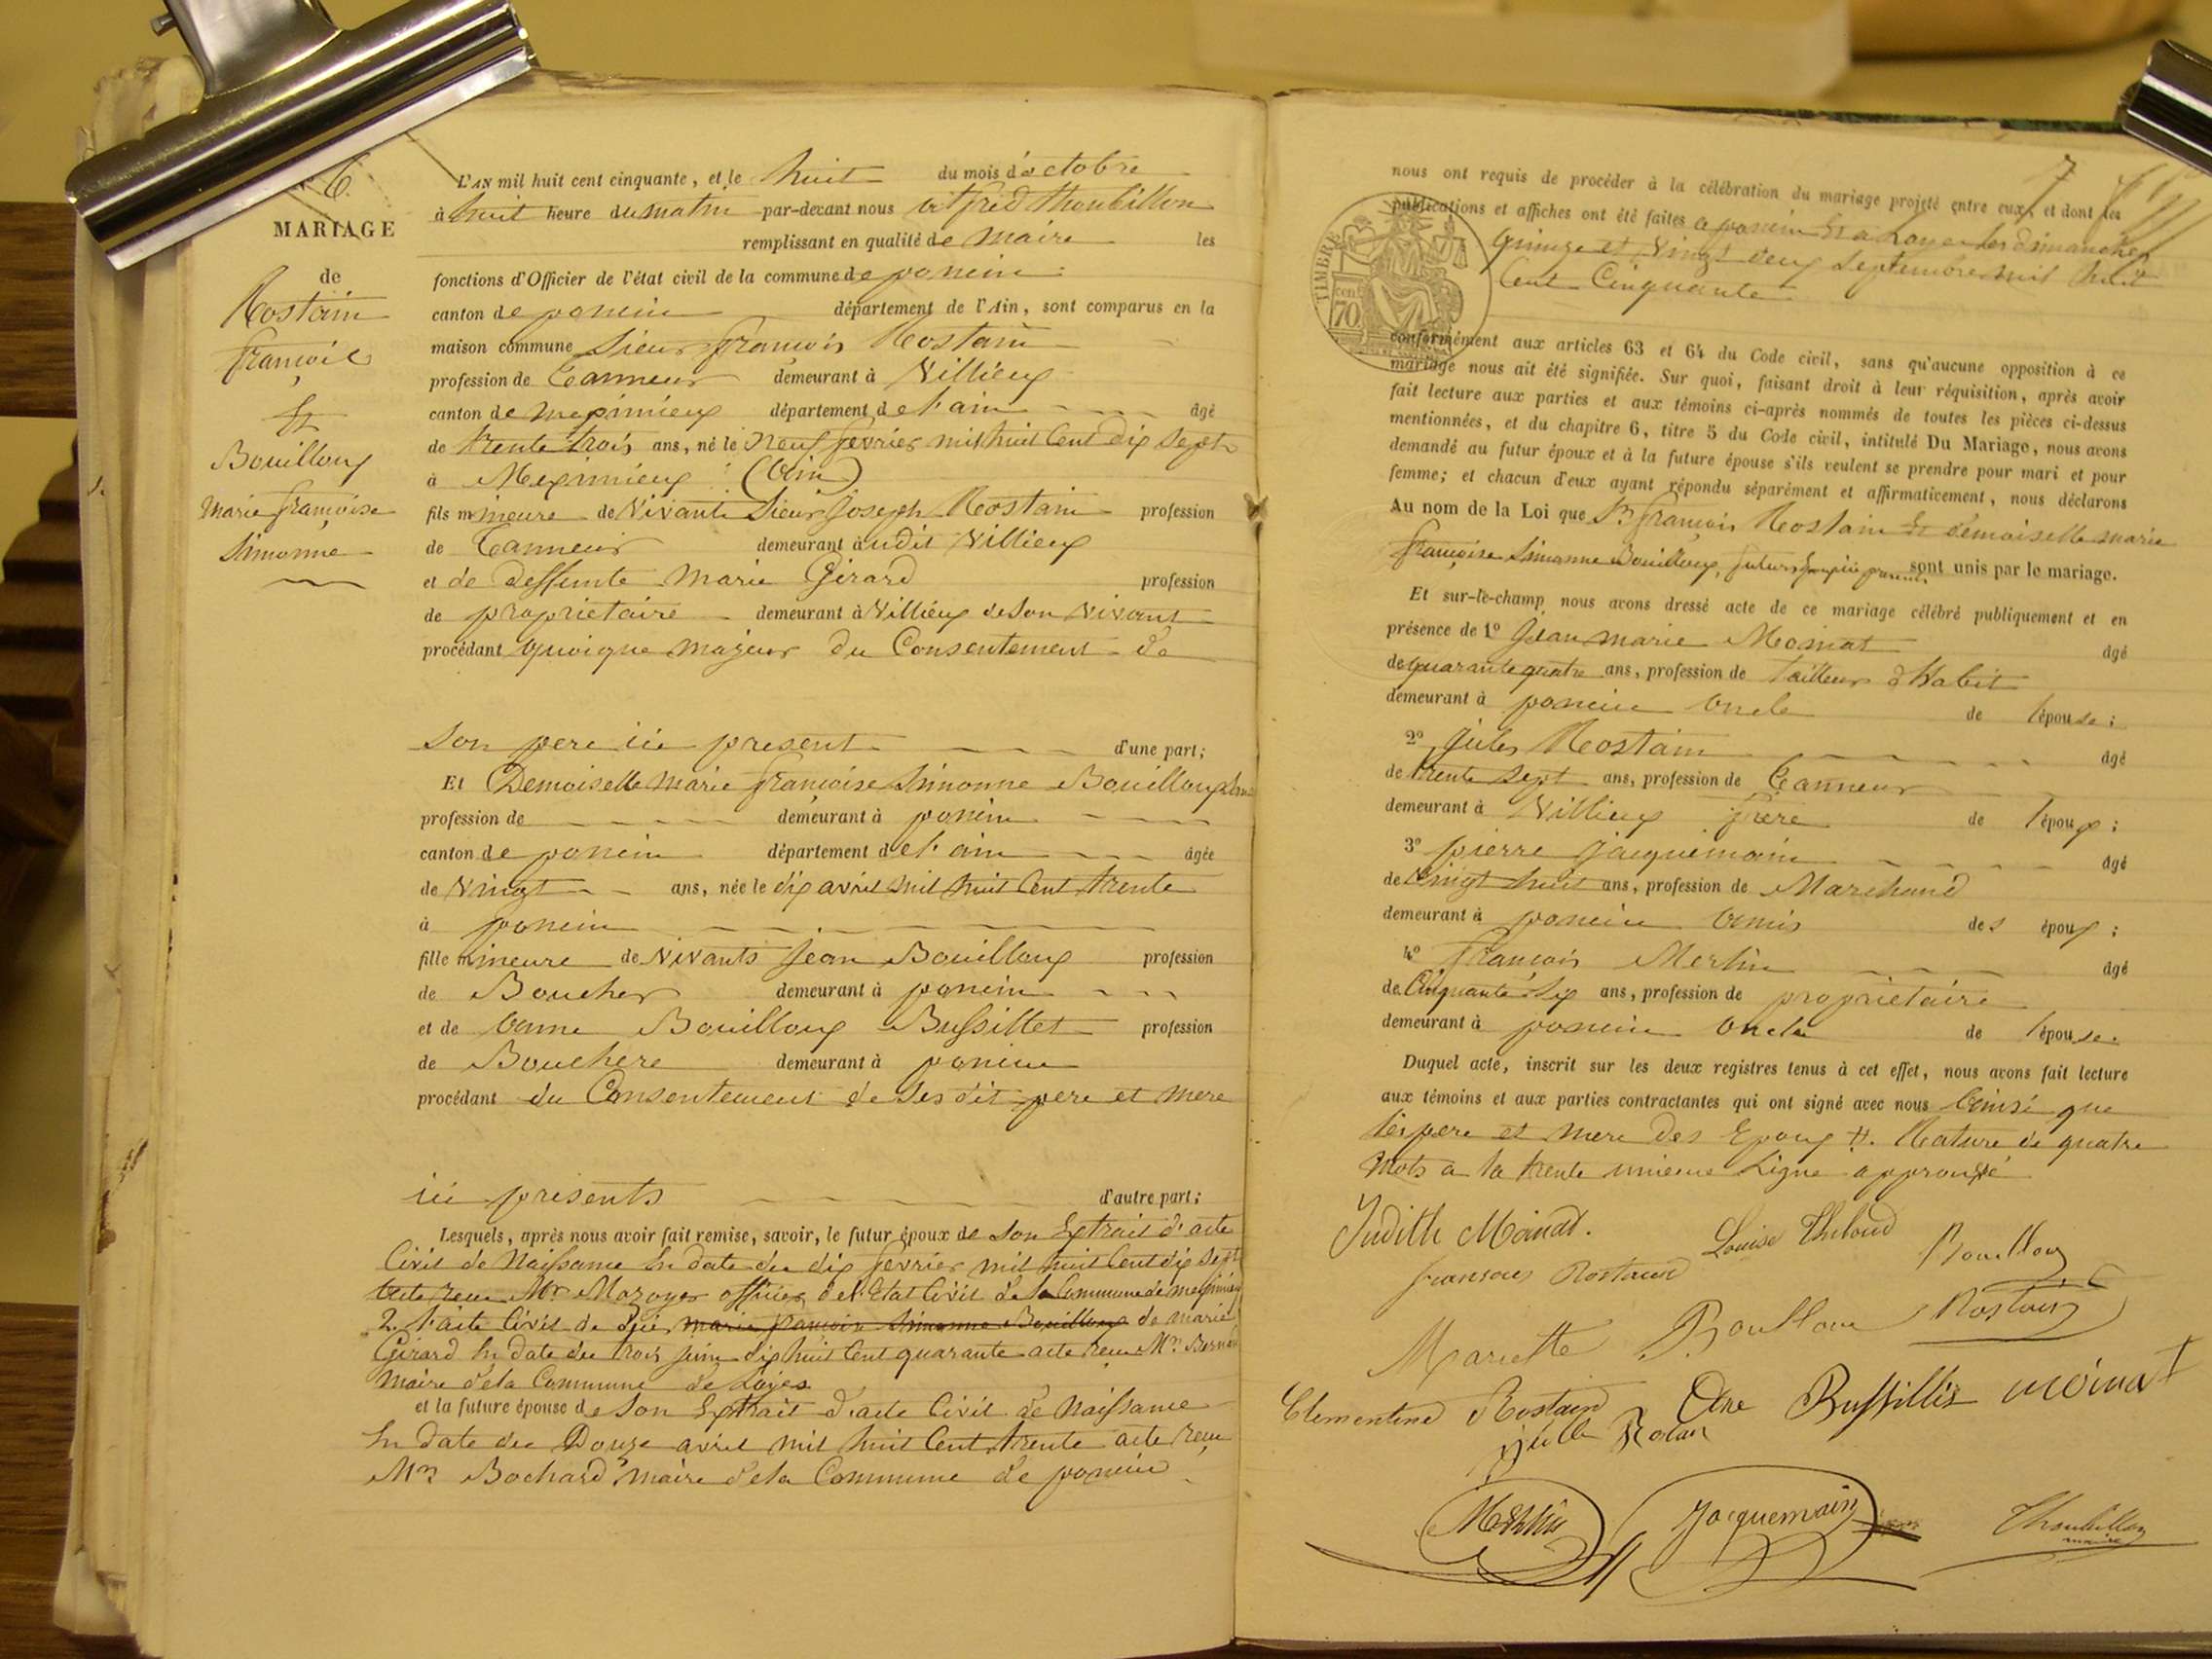 6
MARIAGE
de
Rostain
françois
Et
Bouilloux
Marie françoise
Simonne
L'AN mil huit cent cinquante, et le huit du mois d'octobre
à huit heure du matin par-devant nous alfred thoubillon
remplissant en qualité de maire les
fonctions d'Officier de l'état civil de la commune de poncin
canton de poncin département de l'Ain, sont comparus en la
maison commune Sieur françois Rostain
profession de Tanneur demeurant à Villieux
canton de meximieux département de l'ain âgé
de trente trois ans, né le neuf fevrier mil huit Cent dix sept
à Meximieux (Ain)
fils mineure de Vivant Sieur Joseph Rostain profession
de Tanneur demeurant audit Villieux
et de deffunte Marie Girard profession
de proprietaire demeurant à Villieux de son vivant
procédant quoique majeur du Consentement de
Son pere ici present d'une part;
Et Demoiselle marie françoise Simonne Bouilloux
profession de demeurant à poncin
canton de poncin département de l'ain âgée
de Vingt ans, née le dix avril mil huit Cent trente
à poncin
fille mineure de Vivants Jean Bouilloux profession
de Boucher demeurant à poncin
et de anne Bouilloux Bussillet profession
de Bouchere demeurant à poncin
procédant du Consentement de Ses dit pere et mere
ici presents d'autre part;
Lesquels, après nous avoir fait remise, savoir, le futur époux de Son Extrait d'acte
Civil de Naissance En date du dix fevrier mil huit Cent dix sept
acte reçu Mr Mazoyer officier de l'Etat Civil de la Commune de meximieux
2. l'acte Civil de marie françoise Simonne Bouilloux de marie
Girard En date du trois juin dix huit Cent quarante acte reçu Mr
maire de la Commune de Loyes
et la future épouse de Son Extrait d'acte Civil de Naissance
En date du Douze avril mil huit Cent trente acte reçu
Mr Bochard maire de la Commune de poncin
7
nous ont requis de procéder à la célébration du mariage projeté entre eux, et dont les
publications et affiches ont été faites a poncin Et a Loyes les dimanches
Quinze et Vingt deux Septembre mil huit
Cent Cinquante
TIMBRE
cent
70
conformément aux articles 63 et 64 du Code civil, sans qu'aucune opposition à ce
mariage nous ait été signifiée. Sur quoi, faisant droit à leur réquisition, après avoir
fait lecture aux parties et aux témoins ci-après nommés de toutes les pièces ci-dessus
mentionnées, et du chapitre 6, titre 5 du Code civil, intitulé Du Mariage, nous avons
demandé au futur époux et à la future épouse s'ils veulent se prendre pour mari et pour
femme; et chacun d'eux ayant répondu séparément et affirmativement, nous déclarons
Au nom de la Loi que Sr françois Rostain Et demoiselle marie
françoise Simonne Bouilloux, futurs sont unis par le mariage.
Et sur-le-champ nous avons dressé acte de ce mariage célébré publiquement et en
présence de 1o Jean marie Moinat âgé
de quarante quatre ans, profession de Tailleur d'Habit
demeurant à poncin oncle de l'épouse;
2o Jules Rostain âgé
de trente sept ans, profession de Tanneur
demeurant à Villieux frere de l'époux;
3o pierre jacquemain âgé
de Vingt huit ans, profession de Marchand
demeurant à poncin amis des époux;
4o françois Merlin âgé
de Cinquante six ans, profession de proprietaire
demeurant à poncin oncle de l'épouse.
Duquel acte, inscrit sur les deux registres tenus à cet effet, nous avons fait lecture
aux témoins et aux parties contractantes qui ont signé avec nous Ainsi que
les pere et mere des Epoux. Rature de quatre
Mots a la trente unieme Ligne approuvé
Judith Moinat. Louise Thiboud Bouilloux
fransois Rostain
Mariette Bouilloux Rostain
Clementine Rostain Ane Bussillis moinat
Merlin Jacquemain Thoubillon
maire